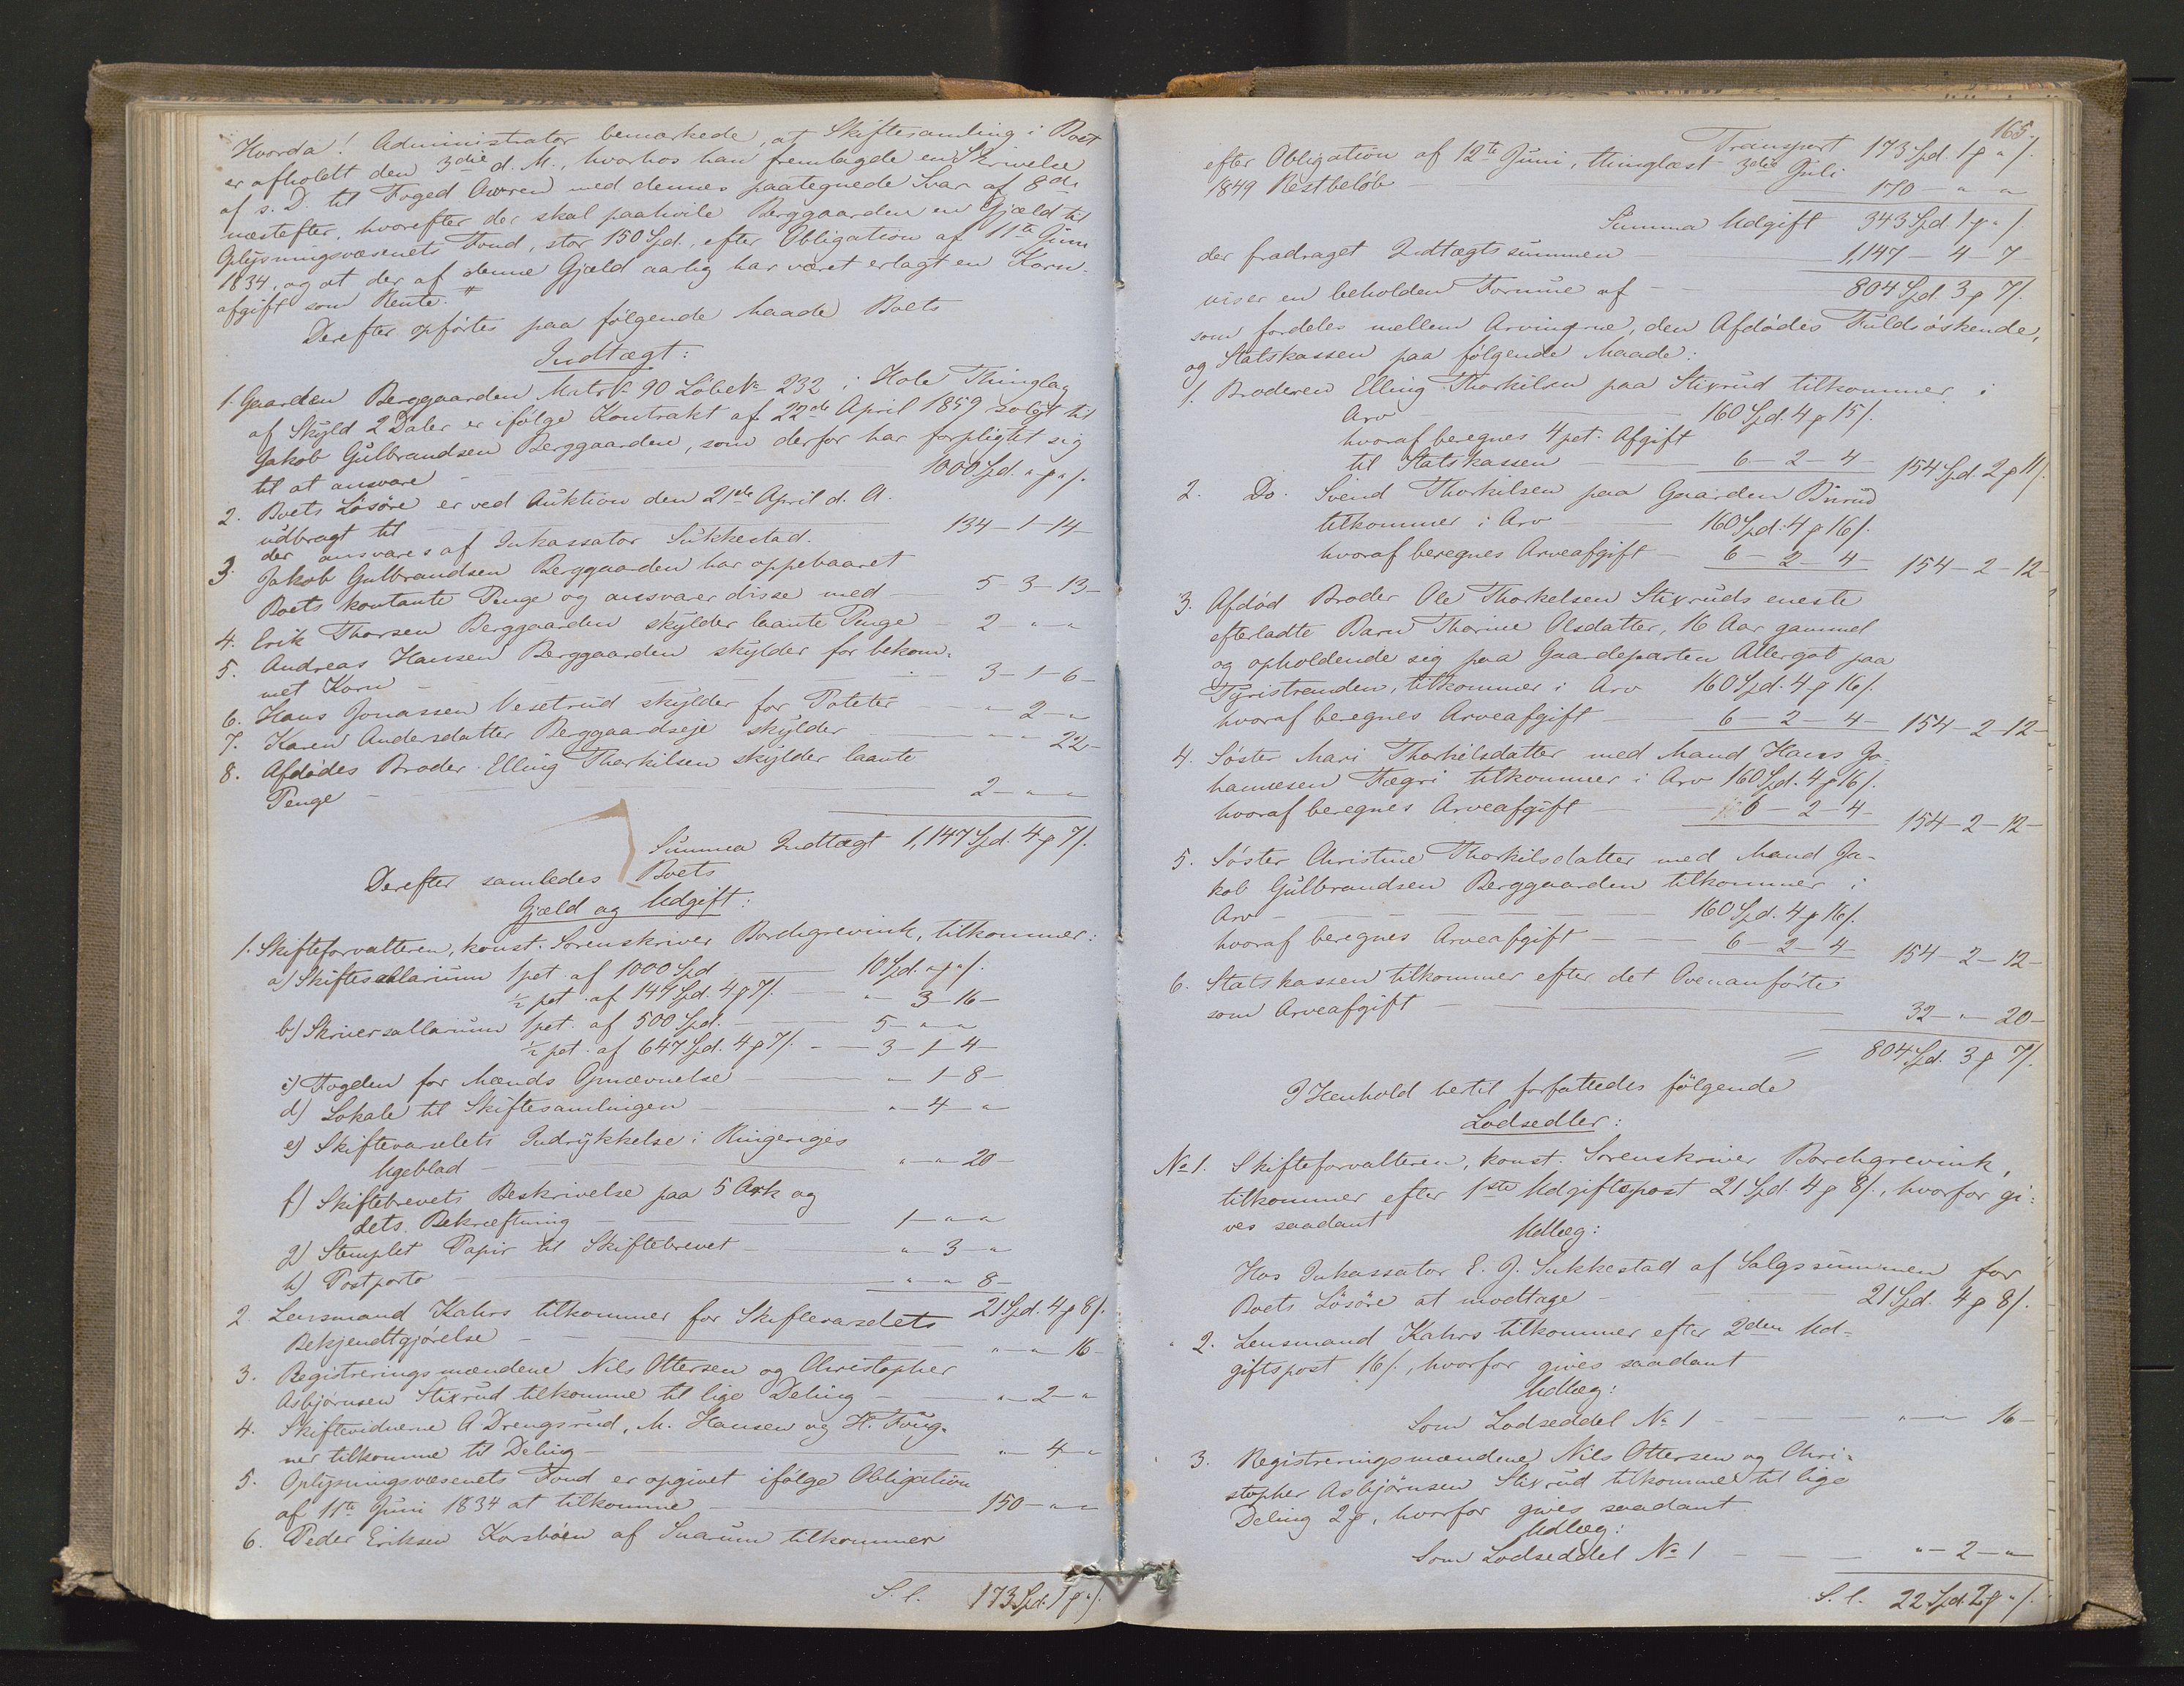 Hvorda! Administrator bemærkede, at Skiftesamling i Boet
er afholdt den 3die d. M., hvorhos han fremlagde en Skrivelse
af s. D. til Foged with dennes paategnede Svar af 8de
næstefter, hvorefter der skal paahvile Berggaarden en Gjæld til
Oplysningsvæsenets Fond, stor 150 Spd., efter Obligation af 11te Juni
1834, og at der af denne Gjæld aarlig har været erlagt en Korn-
afgift som Rente."
Derefter opførtes paa følgende Maade Boets
Indtægt:
1. Gaarden Berggaarden Matr. No 90 Løbe No 232 i Hole Thinglag
af Skyld 2 Daler er ifølge Kontrakt af 22de April 1859 solgt til
Jakob Gulbrandsen Berggaarden, som derfor har forpligtet sig
til at ansvare - 1000 Spd. " ß " /.
2. Boets Løsøre er ved Auktion den 21de April d. A.
udbragt til - 134 - 1 - 14 -
der ansvares af Inkassator Sukkestad.
3. Jakob Gulbrandsen Berggaarden har oppebaaret
Boets kontante Penge og ansvarer disse med - 5 - 3 - 13 -
4. Erik Thorsen Berggaarden skylder laante Penge - 2 - " - "
5. Andreas Hansen Berggaarden skylder for bekom-
met Korn - 3 - 1 - 6 -
6. Hans Jonassen Vesetrud skylder for Poteter - " - 2 - "
7. Karen Andersdatter Berggaardseje skylder - " - " 22 -
8. Afdødes Broder Elling Thorkilsen skylder laante
Penge - 2 - " - "
Summa Indtægt 1,147 Spd. 4 ß 7/.
Derefter samledes Boets
Gjæld og Udgift:
1. Skifteforvalteren, konst. Sorenskriver Borchgrevink, tilkommer:
a) Skiftesallarium 1 pct. af 1000 Spd - 10 Spd. " ß " /.
½ pct. af 147 Spd. 4 ß 7/. - " - 3 - 16 -
b) Skriversallarium 1 pct. af 500 Spd. - 5 - " - "
½ pct. af 647 Spd. 4 ß 7/. - 3 - 1 - 4 -
c) Fogden for Mænds Opnævnelse - " - 1 - 8 -
d) Lokale til Skiftesamlingen - " - 4 - "
e) Skiftevarselets Indrykkelse i Ringeriges
Ugeblad - " - " - 20 -
f) Skiftebrevets Beskrivelse paa 5 Ark og
dets Bekræftning - 1 - " - "
g) Stemplet Papir til Skiftebrevet - " - 3 - "
h) Postporto - " - " 8 -
21 Spd. 4 ß 8/.
2. Lensmand Kahrs tilkommer for Skiftevarselets
Bekjendtgjørelse - " - " 16 -
3. Registreringsmændene Nils Ottersen og Christopher
Asbjørnsen Stixrud tilkomme til lige Deling - " - 2 - "
4. Skiftevidnerne A Drengsrud, M. Hansen og H. Foug-
ner tilkomme til Deling - " - 4 - "
5. Oplysningsvæsenets Fond er opgivet ifølge Obligation
af 11te Juni 1834 at tilkomme - 150 - " - "
6. Peder Eriksen Korsbøen af Snarum tilkommer
S. l. 173 Spd. 1 ß " /.
165.
Transport 173 Spd. 1 ß " /.
efter Obligation af 12te Juni, thinglæst 3die Juli
1849 Restbeløb - 170 - " - "
Summa Udgift 343 Spd. 1 ß " /.
der fradraget Indtægtssummen - 1,147 - 4 - 7
viser en beholden Formue af - 804 Spd. 3 ß 7/.
som fordeles mellem Arvingerne, den Afdødes Fuldsøskende,
og Statskassen paa følgende Maade:
1. Broderen Elling Thorkilsen paa Stixrud tilkommer i
Arv - 160 Spd. 4 ß 15/.
hvoraf beregnes 4 pct. Afgift
til Statskassen - 6 - 2 - 4 - 154 Spd. 2 ß 11/.
2. Do. Svend Thorkilsen paa Gaarden Burud
tilkommer i Arv - 160 Spd. 4 ß 16/.
hvoraf beregnes Arveafgift - 6 - 2 - 4 - 154 - 2 - 12 -
3. Afdød Broder Ole Thorkelsen Stixruds eneste
efterladte Barn Thorine Olsdatter, 16 Aar gammel
og opholdende sig paa Gaardeparten Allergot paa
Tyristranden, tilkommer i Arv 160 Spd. 4 ß 16/.
hvoraf beregnes Arveafgift - 6 - 2 - 4 - 154 - 2 - 12 -
4. Søster Mari Thorkilsdatter med Mand Hans Jo-
hannesen Fægri tilkommer i Arv 160 Spd. 4 ß 16/.
hvoraf beregnes Arveafgift - 6 - 2 - 4 - 154 - 2 - 12 -
5. Søster Christine Thorkilsdatter med Mand Ja-
kob Gulbrandsen Berggaarden tilkommer i
Arv - 160 Spd. 4 ß 16/.
hvoraf beregnes Arveafgift - 6 - 2 - 4 - 154 - 2 - 12 -
6. Statskassen tilkommer efter det Ovenanførte
som Arveafgift - 32 - " - 20 -
= 804 Spd. 3 ß 7/.
I Henhold hertil forfattedes følgende
Lodsedler:
No 1. Skifteforvalteren, konst. Sorenskriver Borchgrevink,
tilkommer efter 1ste Udgiftspost 21 Spd. 4 ß 8/., hvorfor gi-
ves saadant
Udlæg:
Hos Inkassator E. J. Sukkestad af Salgssummen for
Boets Løsøre at modtage - 21 Spd. 4 ß 8/.
" 2. Lensmand Kahrs tilkommer efter 2den Ud-
giftspost 16/., hvorfor gives saadant
Udlæg:
Som Lodseddel No 1 - " - " 16 -
" 3. Registreringsmændene Nils Ottersen og Chri-
stopher Asbjørnsen Stixrud tilkomme til lige
Deling 2 ß, hvorfor gives saadant
Udlæg:
Som Lodseddel No 1 - " - 2 - "
S. l. 22 Spd. 2 ß " /.